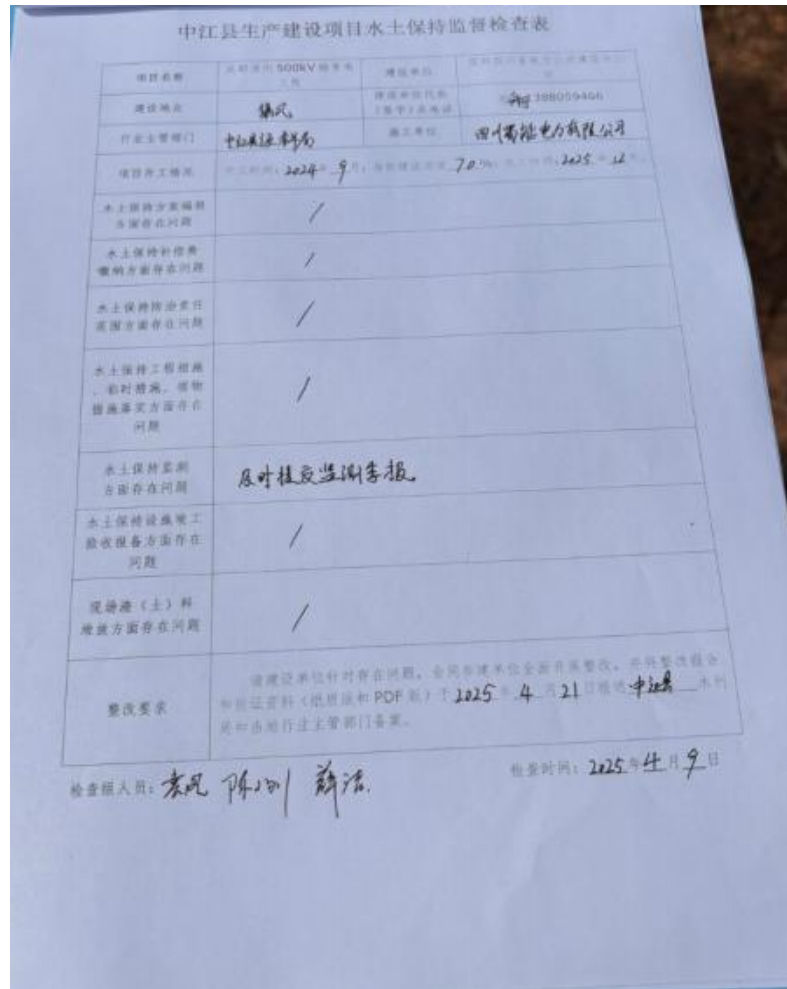 中江县生产建设项目水土保持监督检查表
项目名称
500kV
建设单位
建设地点
集凤
388059466
行业主管部门
施工单位
四川蜀能电力有限公司
项目开工情况
2024年9月
70%
2025年12月
水土保持方案编制
方面存在问题
/
水土保持补偿费
缴纳方面存在问题
/
水土保持防治责任
范围方面存在问题
/
水土保持工程措施
、临时措施、植物
措施落实方面存在
问题
/
水土保持监测
方面存在问题
及时提交监测季报。
水土保持设施竣工
验收报备方面存在
问题
/
现场渣（土）料
堆放方面存在问题
/
整改要求
请建设单位针对存在问题，会同参建单位全面开展整改，并将整改报告
和佐证资料（纸质版和PDF版）于2025年4月21日报送中江县水利
局和当地行业主管部门备案。
检查组人员：
检查时间：2025年4月9日